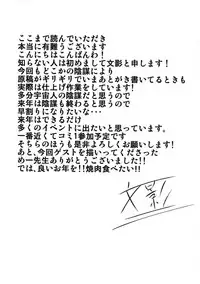 ここまで読んでいただき
本当に有難うございます
こんにちはこんばんわ！
知らない人は初めまして文影と申します！
今回もどこかの陰謀により
原稿がギリギリでいまあとがき書いてるときも
実際は仕上げ作業をしています
多分宇宙人の陰謀だと思うので
来年は陰謀も終わると思うので
早割りになりたいな…
来年はできるだけ
多くのイベントに出たいと思っています。
一番近くてコミ1参加予定です
そちらのほうも是非よろしくお願いします！
あと、今回ゲストを描いてくださった
め一先生ありがとうございました！！
では、良いお年を！！焼肉食べたい！！
文影